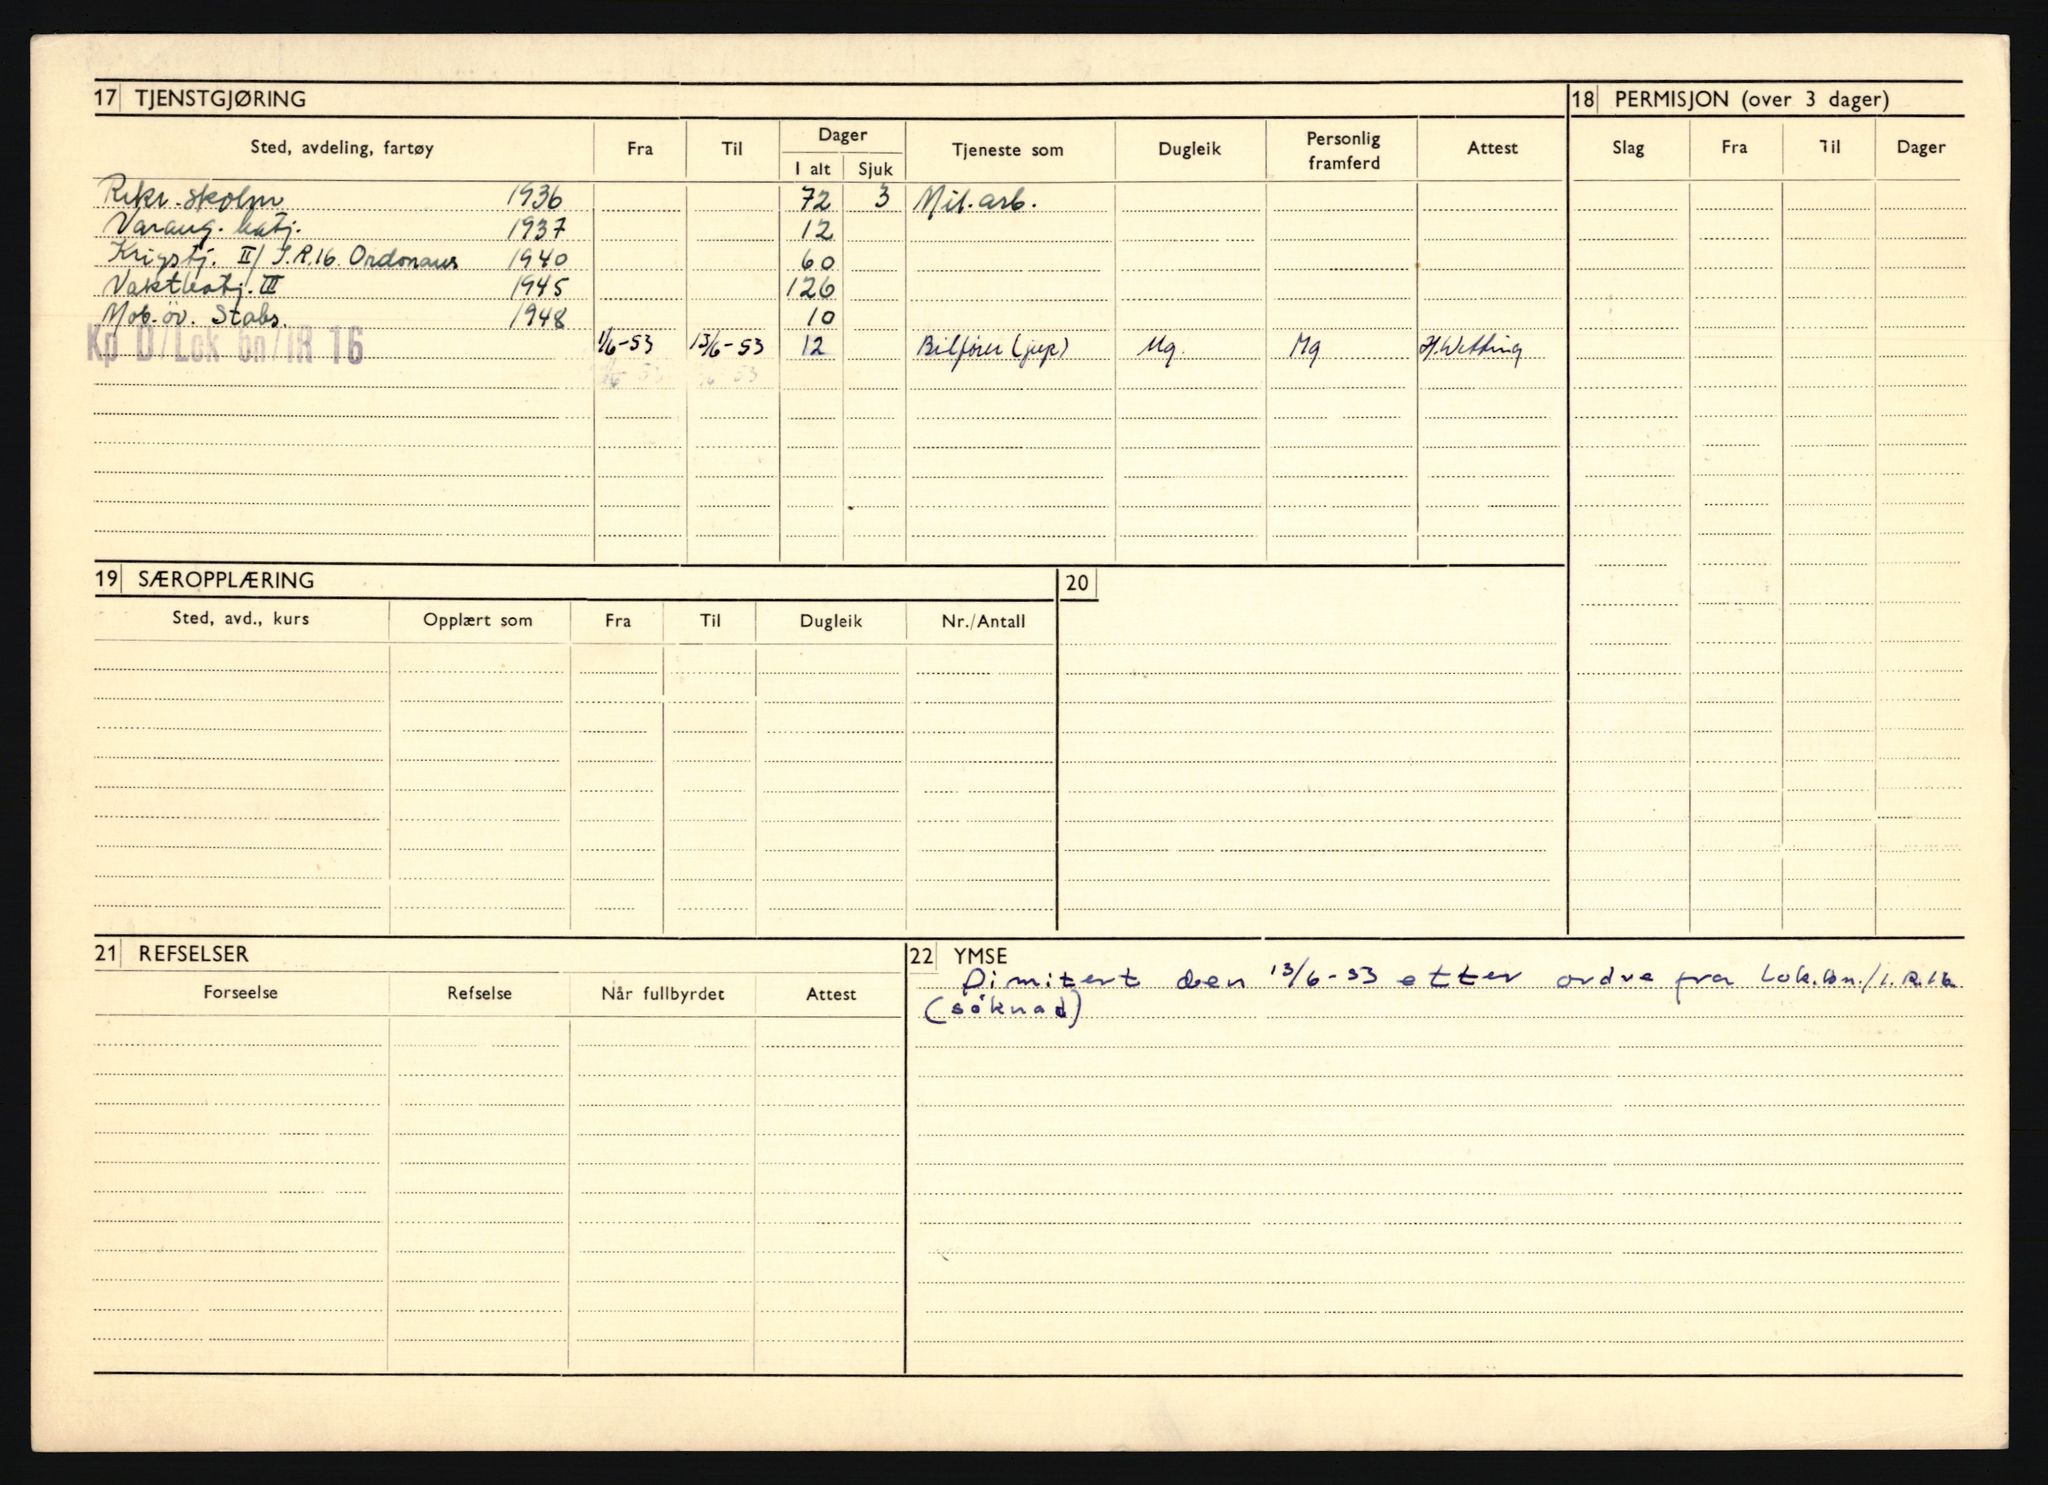 17 TJENSTGJØRING
18 PERMISJON (over 3 dager)
Sted, avdeling, fartøy Fra Til Dager Tjeneste som Dugleik Personlig framferd Attest Slag Fra Til Dager
I alt Sjuk
Rekr. skolen 1936 72 3 Mil. arb.
Varang. batj. 1937 12
Krigstj. II/I.R.16. Ordonans 1940 60
Vaktbatj. III 1945 126
Mob. öv. Stabs. 1948 10
Kp D/Lok bn/IR 16 1/6-53 13/6-53 12 Bilfører (jeep) Mg. Mg H.Wetting
19 SÆROPPLÆRING
20
Sted, avd., kurs Opplært som Fra Til Dugleik Nr./Antall
21 REFSELSER
22 YMSE
Forseelse Refselse Når fullbyrdet Attest
Dimitert den 13/6-53 etter ordre fra Lok.bn./I.R.16
(söknad)